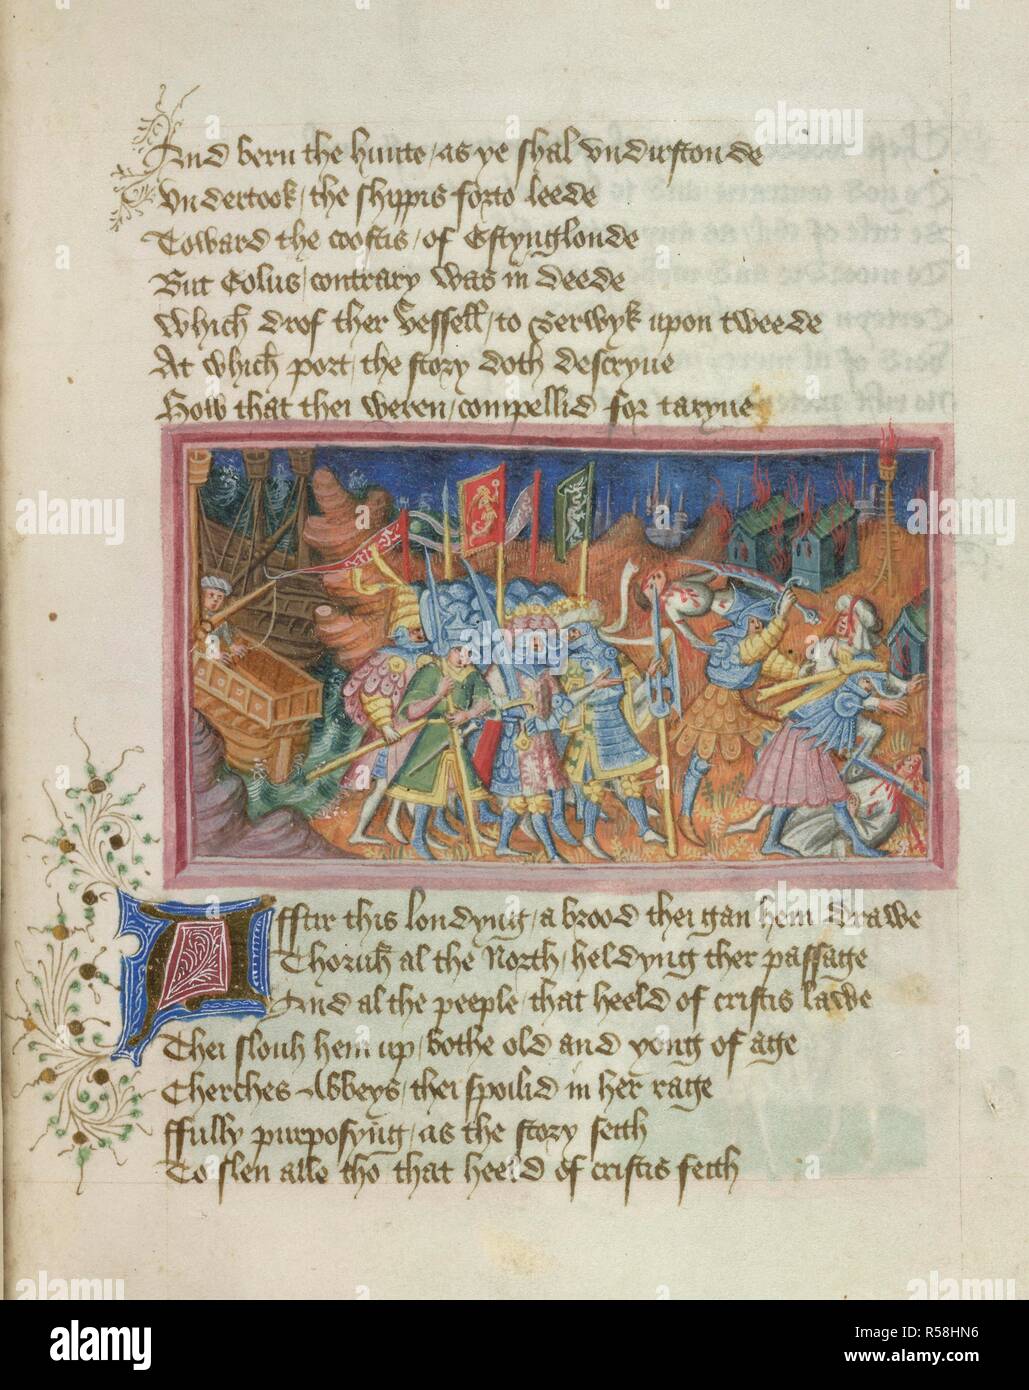 And bern the hunte / as ye shal vndirstonde
Vndertook / the shippis forto leede
Toward the coostis / of Estynglonde
But Eolus / contrary was in deede
Which drof ther vessell / to Berwyk upon tweede
At which port / the story doth descryue
How that thei weren / compellid for taryue
Afftir this londyng / a brood thei gan hem drawe
Thoruh al the North / heldyng ther passage
And al the peeple / that heeld of cristis lawe
Thei slouh hem up / bothe old and yong of age
Cherches Abbeys / thei spoilid in her rage
ffully purposyng / as the story seith
To slen alle tho that heeld of cristis feith
alamy
alamy stock photo
R58HN6
www.alamy.com